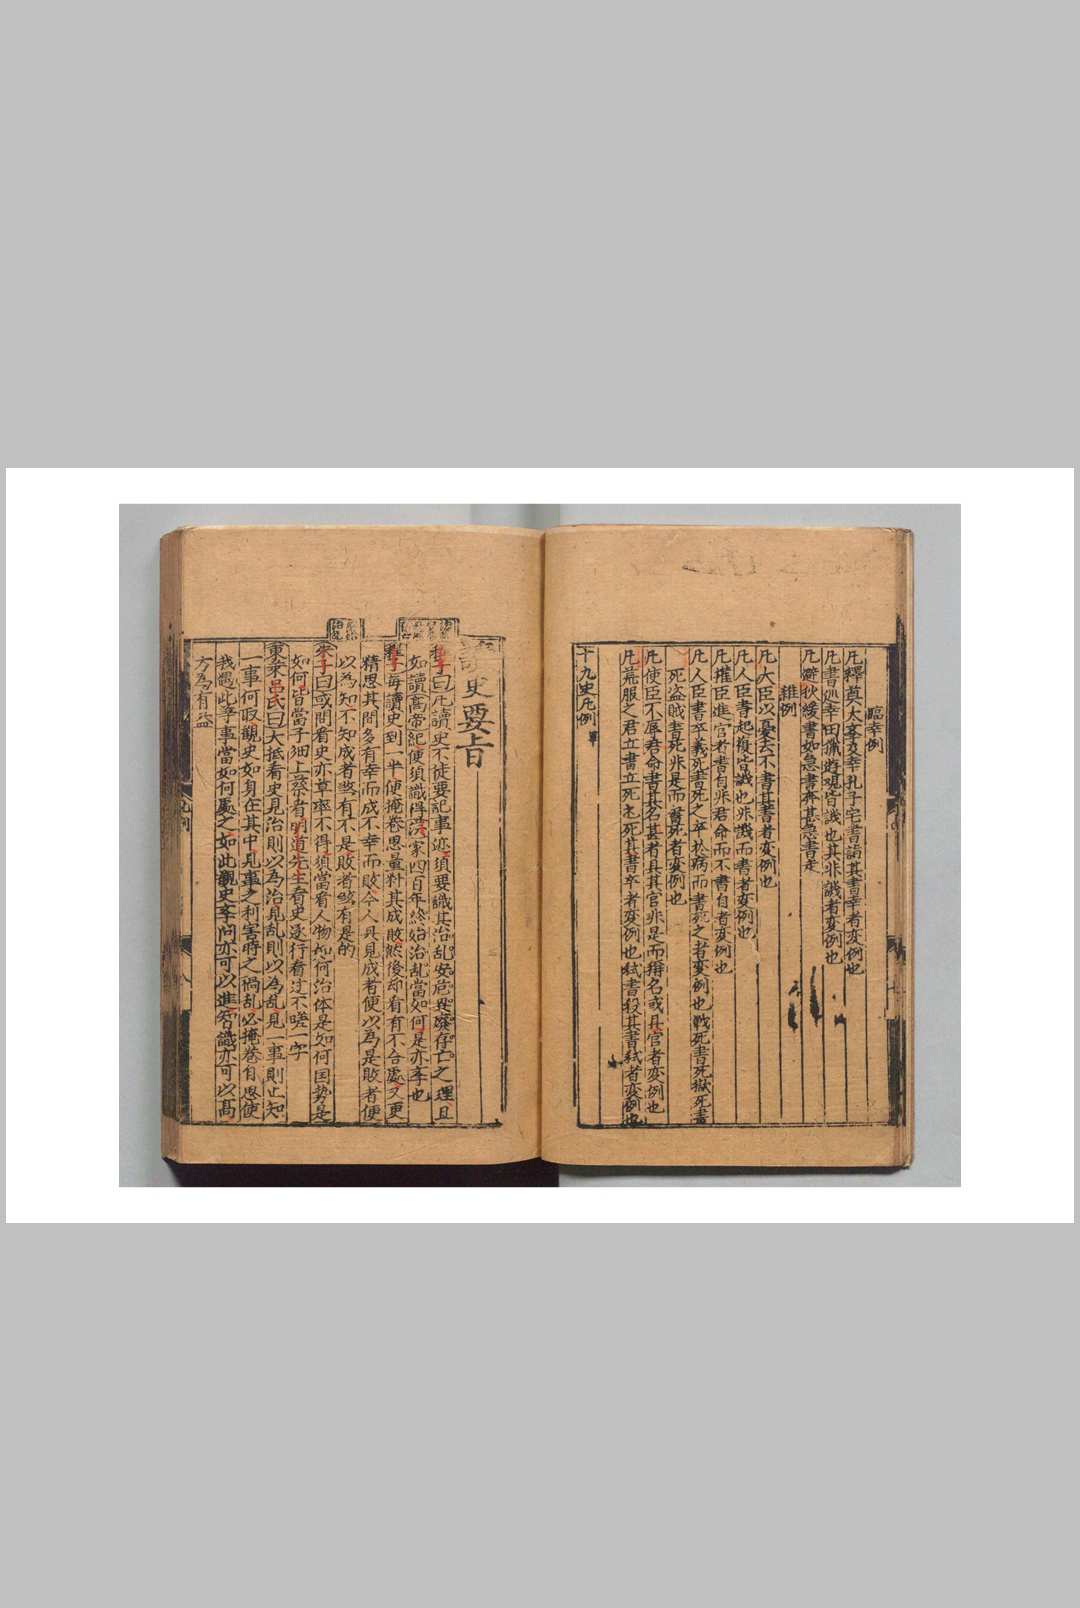 臨幸例
凡釋奠太學及幸孔子宅書謁其書幸者变例也
凡書巡幸田獵遊观皆譏也其非譏者变例也
凡避狄緩書如急書奔甚急書走
雜例
凡大臣以憂去不書其書者变例也
凡人臣書起復皆譏也非譏而書者变例也
凡擢臣進官者書自非君命而不書自者变例也
凡人臣書卒義死書死之卒於病而書死之者变例也戰死書死獄死書
死盗賊書死非是而書死者变例也
凡使臣不辱君命書其名甚者具其官非是而得名或具官者变例也
凡荒服之君立書立死書死其書卒者变例也弑書殺其書弑者变例也
十九史凡例 畢
讀史要旨
程子曰凡讀史不徒要記事迹須要識其治乱安危興廢存亡之理且
如讀髙帝紀便須識得漢家四百年終始治乱當如何是亦孝也
程子每讀史到一半便掩卷思量料其成敗然後却看有不合處又更
精思其間多有幸而成不幸而敗今人只見成者便以為是敗者便
以為知不知成者煞有不是敗者煞有是的
朱子曰或問看史亦草率不得須當看人物如何治体是如何国勢是
如何皆當子細上蔡者明道先生看史逐行看过不嗟一字
東萊吕氏曰大抵看史見治則以為治見乱則以為乱見一事則止知
一事何取觀史如身在其中見事之利害時之禍乱必掩卷自思使
我遇此等事當如何處之如此觀史孝问亦可以進智識亦可以髙
方為有益
凡例
八